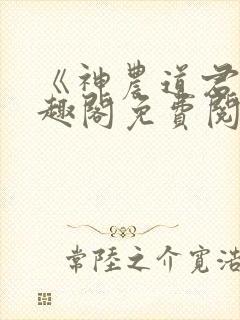 《神農道君
趣閣免費閱
常陸之介寬浩